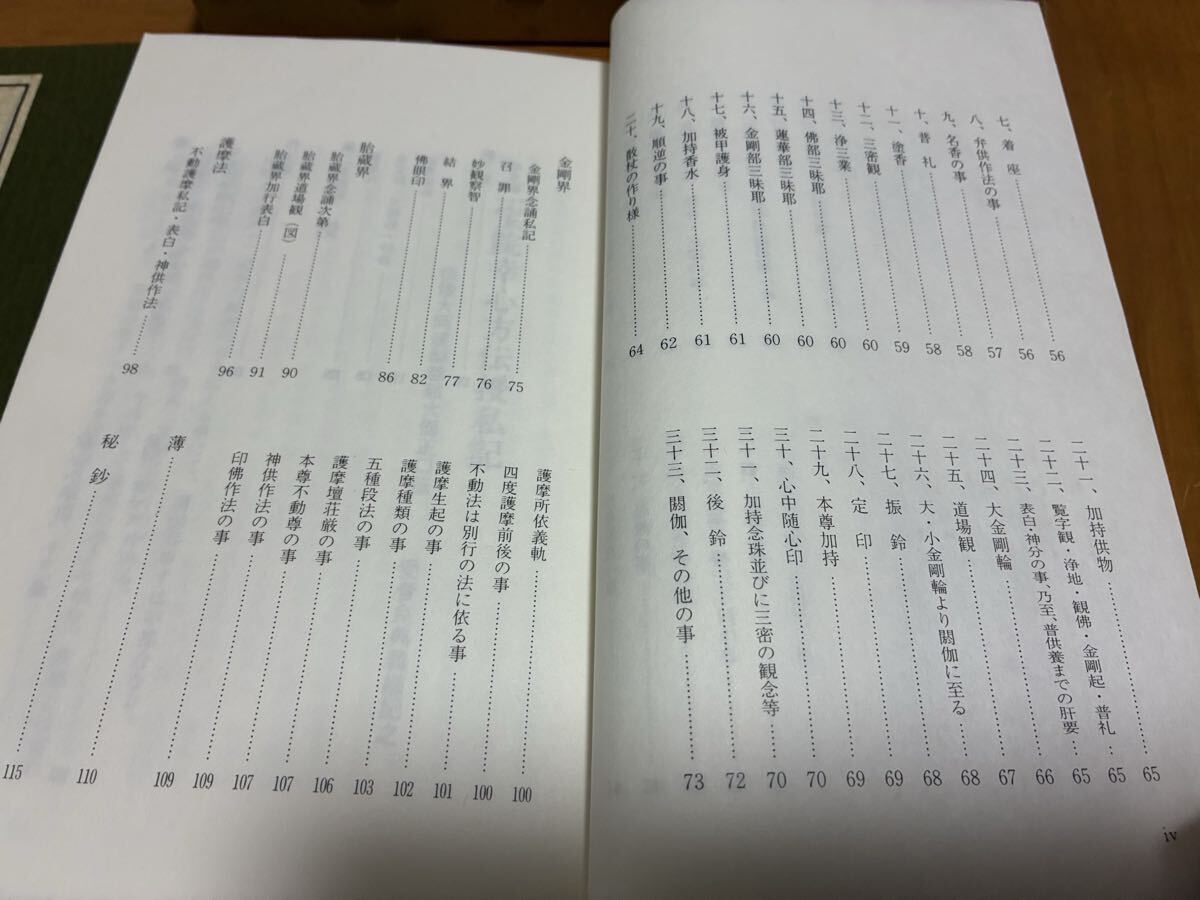 七、着 座……56
八、弁供作法の事……56
九、名香の事……57
十、普 礼……58
十一、塗香……58
十二、三密観……59
十三、浄三業……60
十四、佛部三昧耶……60
十五、蓮華部三昧耶……60
十六、金剛部三昧耶……60
十七、被甲護身……61
十八、加持香水……61
十九、順逆の事……62
二十、散杖の作り様……64
二十一、加持供物……65
二十二、覧字観・浄地・観佛・金剛起・普礼……65
二十三、表白・神分の事、乃至、普供養までの肝要……65
二十四、大金剛輪……66
二十五、道場観……67
二十六、大・小金剛輪より閼伽に至る……68
二十七、振 鈴……68
二十八、定 印……69
二十九、本尊加持……69
三十、心中随心印……70
三十一、加持念珠並びに三密の観念等……70
三十二、後 鈴……72
三十三、閼伽、その他の事……73
iv
金剛界
金剛界念誦私記……75
召 罪……76
妙観察智……77
結 界……82
佛眼印……86
胎蔵界
胎蔵界念誦次第……90
胎蔵界道場観(図)……91
胎蔵界加行表白……96
護摩法
不動護摩私記・表白・神供作法……98
護摩所依義軌……100
四度護摩前後の事……100
不動法は別行の法に依る事……101
護摩生起の事……102
護摩種類の事……103
五種段法の事……106
護摩壇荘厳の事……107
本尊不動尊の事……107
神供作法の事……109
印佛作法の事……109
薄……110
秘 鈔……115